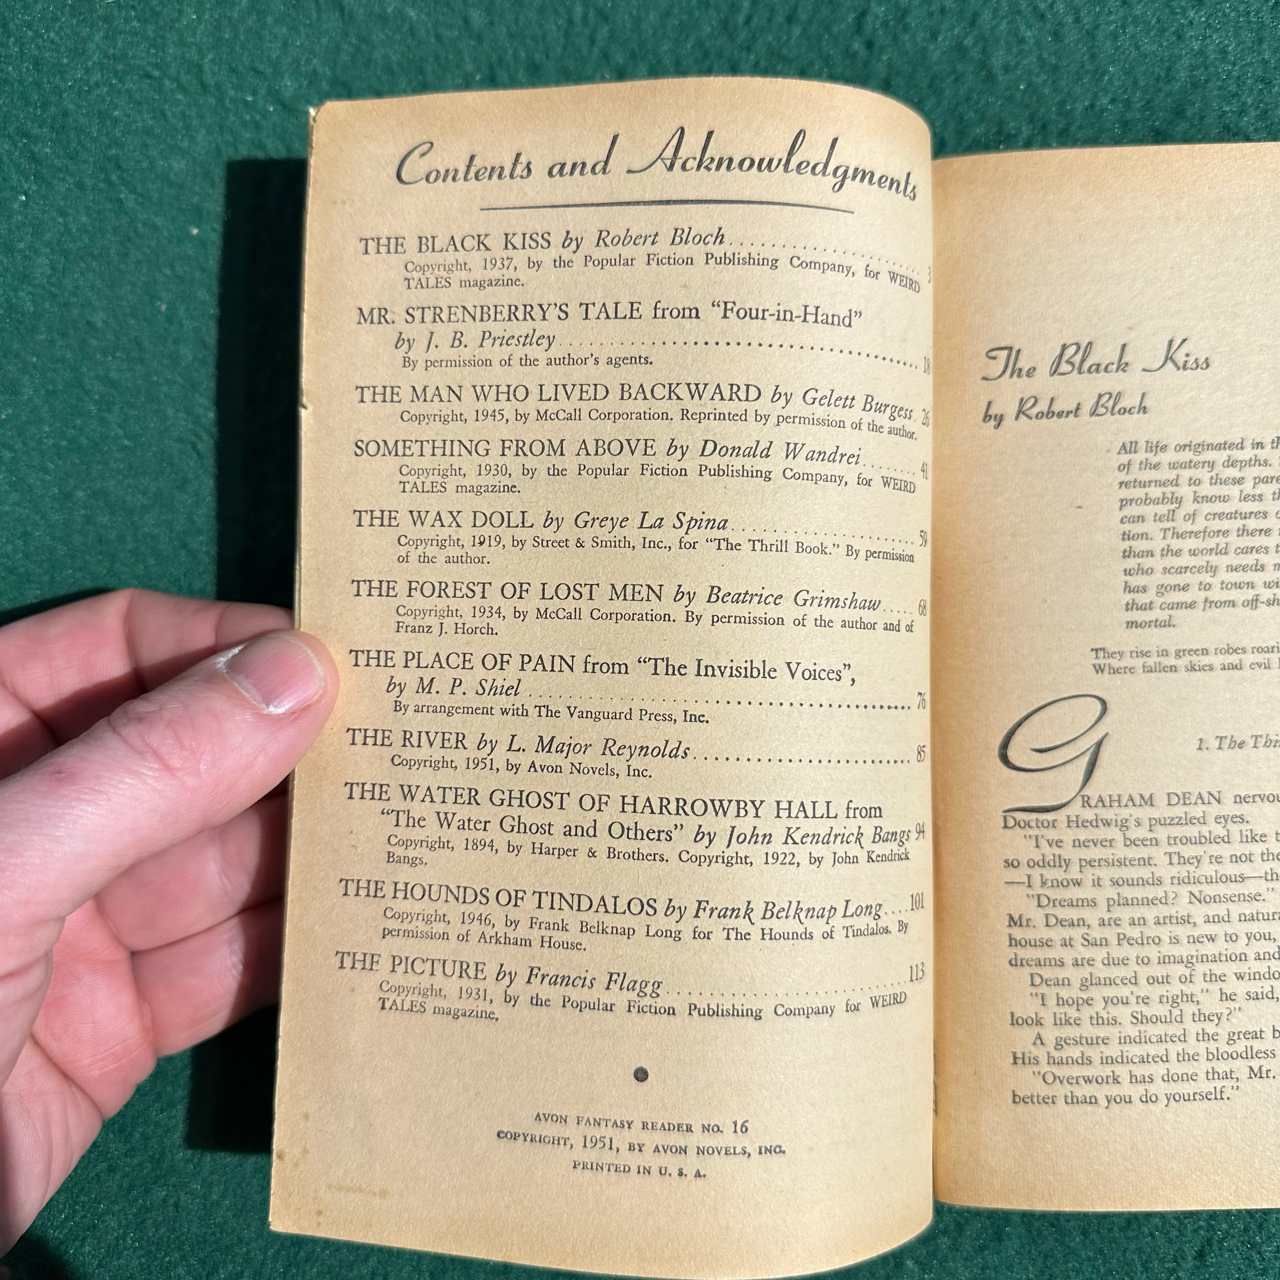 Contents and Acknowledgments
THE BLACK KISS by Robert Bloch
Copyright, 1937, by the Popular Fiction Publishing Company, for WEIRD
TALES magazine.
MR. STRENBERRY'S TALE from "Four-in-Hand"
by J. B. Priestley 18
By permission of the author's agents.
THE MAN WHO LIVED BACKWARD by Gelett Burgess 26
Copyright, 1945, by McCall Corporation. Reprinted by permission of the author.
SOMETHING FROM ABOVE by Donald Wandrei 41
Copyright, 1930, by the Popular Fiction Publishing Company, for WEIRD
TALES magazine.
THE WAX DOLL by Greye La Spina 59
Copyright, 1919, by Street & Smith, Inc., for "The Thrill Book." By permission
of the author.
THE FOREST OF LOST MEN by Beatrice Grimshaw 68
Copyright, 1934, by McCall Corporation. By permission of the author and of
Franz J. Horch.
THE PLACE OF PAIN from "The Invisible Voices",
by M. P. Shiel 76
By arrangement with The Vanguard Press, Inc.
THE RIVER by L. Major Reynolds 85
Copyright, 1951, by Avon Novels, Inc.
THE WATER GHOST OF HARROWBY HALL from
"The Water Ghost and Others" by John Kendrick Bangs 94
Copyright, 1894, by Harper & Brothers. Copyright, 1922, by John Kendrick
Bangs.
THE HOUNDS OF TINDALOS by Frank Belknap Long 101
Copyright, 1946, by Frank Belknap Long for The Hounds of Tindalos. By
permission of Arkham House.
THE PICTURE by Francis Flagg 113
Copyright, 1931, by the Popular Fiction Publishing Company for WEIRD
TALES magazine.
AVON FANTASY READER NO. 16
COPYRIGHT, 1951, BY AVON NOVELS, INC.
PRINTED IN U. S. A.
The Black Kiss
by Robert Bloch
All life originated in
of the watery depths.
returned to these
probably know less
can tell of creatures
tion. Therefore there
than the world cares
who scarcely needs
has gone to town
that came from
mortal.
They rise in green robes
Where fallen skies and evil
1. The
GRAHAM DEAN
Doctor Hedwig's puzzled eyes.
"I've never been troubled like
so oddly persistent. They're not
—I know it sounds ridiculous—
"Dreams planned? Nonsense."
Mr. Dean, are an artist, and
house at San Pedro is new to you,
dreams are due to imagination and
Dean glanced out of the
"I hope you're right," he said,
look like this. Should they?"
A gesture indicated the great
His hands indicated the bloodless
"Overwork has done that, Mr.
better than you do yourself."